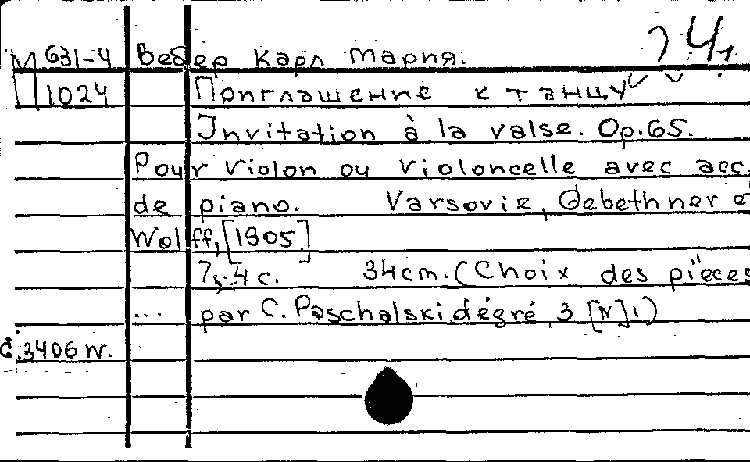 М 631-4 Вебер Карл Мария. 24,
П 1024 Приглашение к танцу
Invitation à la valse. Op. 65.
Pour violon ou violoncelle avec acc.
de piano. Varsovie, Gebethner e
Wolff, [1905]
7, 4 c. 34 cm. (Choix des pièces
... par C. Paschalski dégré 3 [N] 1)
C. 3406 W.